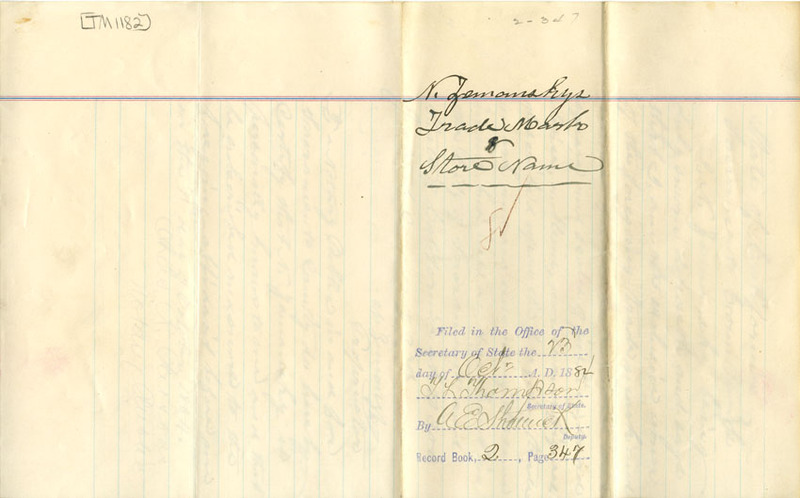 [TM1182]
2-347
N. Zemanskys
Trade Mark
&
Store Name
8
Filed in the Office of the
Secretary of State the
day of Oct A. D. 1884
T L Thompson
Secretary of State.
By A E
Deputy.
Record Book, 2, Page 347